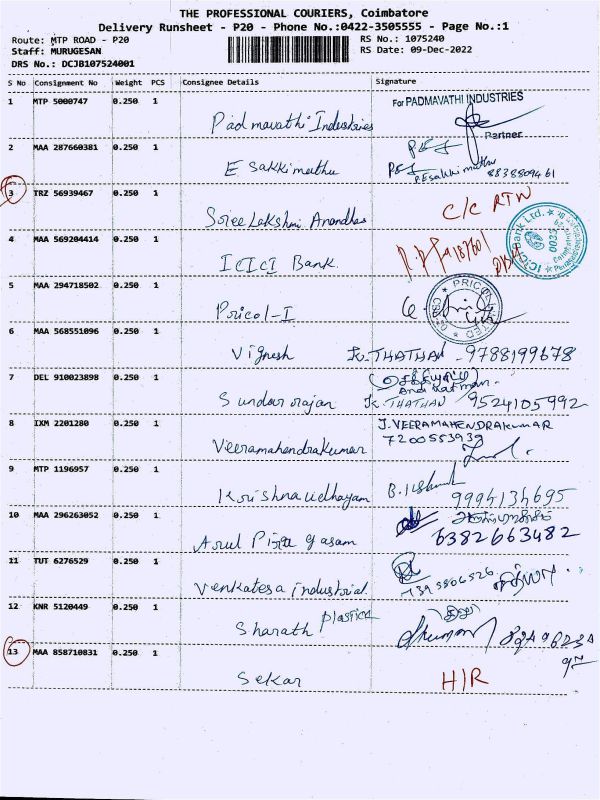 THE PROFESSIONAL COURIERS, Coimbatore
Delivery Runsheet - P20 - Phone No.:0422-3505555 - Page No.:1
Route: MTP ROAD - P20 RS No.: 1075240
Staff: MURUGESAN RS Date: 09-Dec-2022
DRS No.: DCJB107524001
S No Consignment No Weight PCS Consignee Details Signature
1 MTP 5000747 0.250 1 For PADMAVATHI INDUSTRIES
Padmavathi Industries Partner
2 MAA 287660381 0.250 1
Esakkimuthu P.Esakkimuthu 8838809461
3 TRZ 56939467 0.250 1
Sree Lakshmi Anandhas C/C RTN
4 MAA 569204414 0.250 1 ICICI Bank Ltd.
ICICI Bank
5 MAA 294718502 0.250 1 PRICOL LIMITED
Pricol-I
6 MAA 568551096 0.250 1
Vignesh K.THATHAN - 9788199678
7 DEL 910023898 0.250 1
Sundar rajan K.THATHAN 9524105992
8 IXM 2201280 0.250 1 J.VEERAMAHENDRAKUMAR
Veeramahendrakumar 7200553939
9 MTP 1196957 0.250 1
Krishna udhayam 9994134695
10 MAA 296263052 0.250 1
Arul 6382663482
11 TUT 6276529 0.250 1
Venkatesa industrial
12 KNR 5120449 0.250 1
Sharath plastics
13 MAA 858710831 0.250 1
Sekar H/R